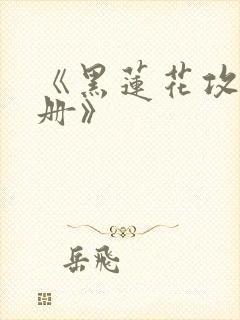 《黑蓮花攻
册》
岳飛